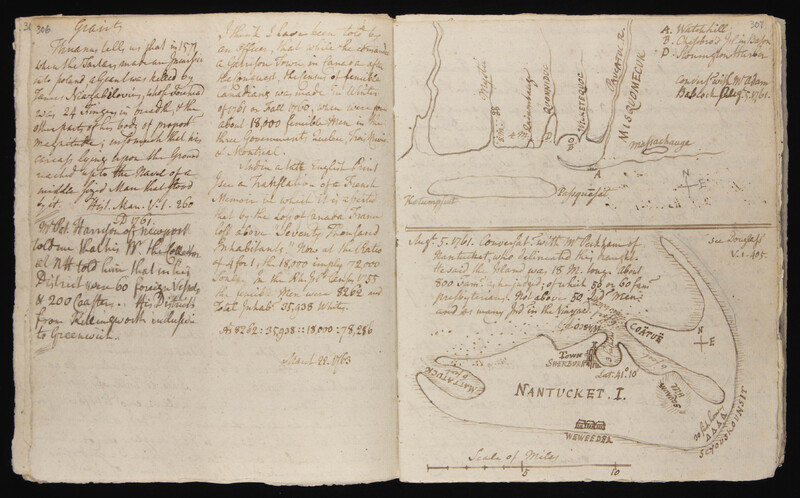 306
Giants
Thuanus tells us that in 1571
when the Tartars made an Incursion
into poland, a Giant was killed by
James Niazabilovius, whose Forehead
was 24 Fingers in breadth, & the
other parts of his body of proport.
magnitude; insomuch that his
carcass lying upon the Ground
reached up to the Navel of a
middle siz'd Man that stood
by it. Hist. Man. V. 1. 260
D 1761.
Mr Pet. Harrison of Newport
told me that his Br. the Collector
at NH told him that in his
District were 60 foreign Vessels
& 200 Coasters. His District
from Killingworth inclusive
to Greenwich.
I think I have been told by
an Officer, that while he
a Garrison Town in Canada after
the Conquest, the Census of fencible
Canadians was made in Winter
of 1761 or Fall 1760, when were found
about 18,000 fencible Men in the
three Government Quebec, Trois Rivieres
& Montreal.
in a late English Print
I see a Translation of a French
Memoir in which it is asserted
that by the Loss of Canada France
lost above Seventy Thousand
Inhabitants. Now at the Ratio
of 4 for 1, the 18,000 imply 72,000
Souls. In the Rh. Isl. 1755
the fencible Men were 8262 and
Total Inhabts 35,938 Whites.
As 8262 : 35,938 :: 18,000 : 78,286
March 22. 1763
307
A. Watchhill
B.
D. Stonington Harbor
Convers' with Mr Adam
Babcock Augt 5. 1761.
Mystic
QUONNIDUC
PAUCATUC R.
MISQUOMECUK
Mattachauga
A
N
E
Augt 5. 1761. Conversat. with Mr Peckham of
Nantucket, who delineated this draught.
He said the Island was 18 M. long. About
800 Fam. in the Judgt; of which 50 or 60 fam.
presbyterians. Not above 50 Indn Men
and as many in the Vineyd.
see Douglass
V. 1. 405.
COATUE
N
E
TOWN
SHERBURN
Lat. 41° 10'
NANTUCKET. I.
SQUAM
HILL
WEWEEDEA
SCYOUSKOUNSIT
Scale of Miles
5
10